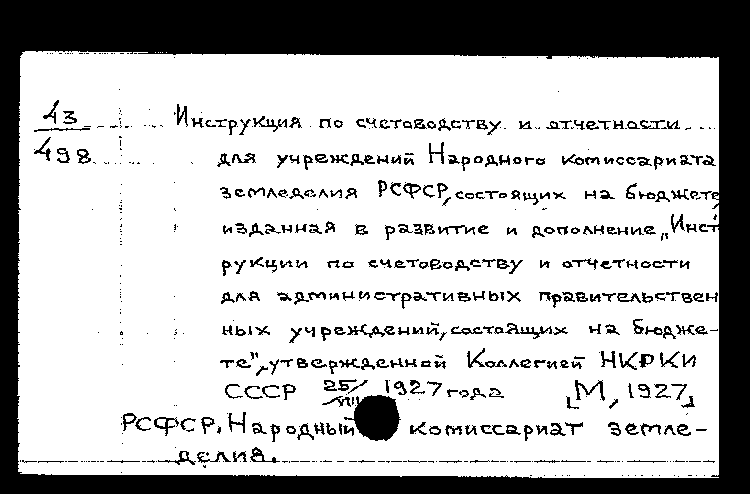 43
498
Инструкция по счетоводству и отчетности
для учреждений Народного комиссариата
земледелия РСФСР, состоящих на бюджете,
изданная в развитие и дополнение „Инст
рукции по счетоводству и отчетности
для административных правительствен
ных учреждений, состоящих на бюдже-
те", утвержденной Коллегией НКРКИ
СССР 25/VIII 1927 года [М, 1927]
РСФСР. Народный комиссариат земле-
делия.